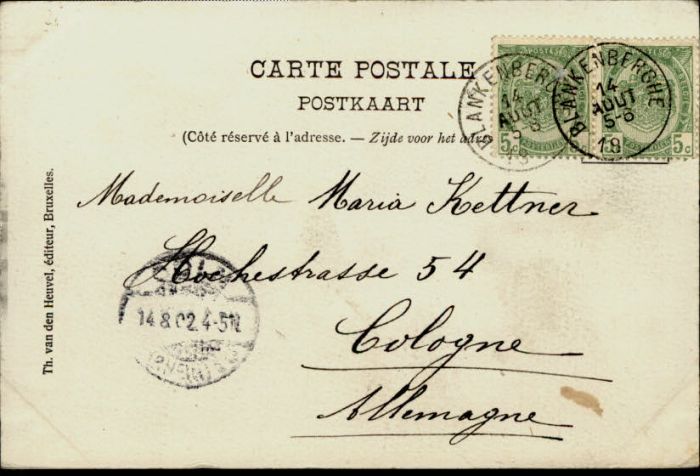 CARTE POSTALE
POSTKAART
(Côté réservé à l'adresse. — Zijde voor het adres
BLANKENBERG
14
AOUT
5-6
19
BLANKENBERGHE
14
AOUT
5-6
19
5c
5c
Mademoiselle Maria Kettner
Hochestrasse 54
Cologne
Allemagne
14.8.02.4-5N
(RHEIN)
Th. van den Heuvel, éditeur, Bruxelles.